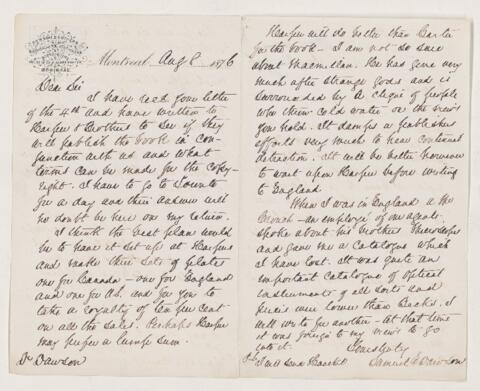 Montreal, Aug 8 1876
Dear Sir
I have read your letter
of the 4th and have written to
Harper & Brothers to see if they
will publish the book in con-
junction with us and what
terms can be made for the copy-
right. I have to go to Toronto
for a day and their answer will
no doubt be here on my return.
I think the best plan would
be to have it set up at Harpers
and make three sets of plates
one for Canada - one for England
and one for U.S. and for you to
take a royalty of ten per cent
on all the sales. Perhaps Harper
may prefer a lump sum.
Dr Dawson
Harper will do better than Carter
for the book - I am not so sure
about Macmillan. He has gone very
much after strange gods and is
surrounded by a clique of people
who throw cold water on the views
you hold. It damps a publishers
efforts very much to hear continual
detraction. It will be better however
to wait upon Harper before writing
to England.
When I was in England a Mr
- an employé of our agents
spoke about his brother
and gave me a Catalogue which
I have lost. It was quite an
important Catalogue of optical
instruments of all sorts and
prices were lower than Becks. I
will write for another - at that time
it was going to my views to go
into it.
Yours truly
Samuel E Dawson
I will send